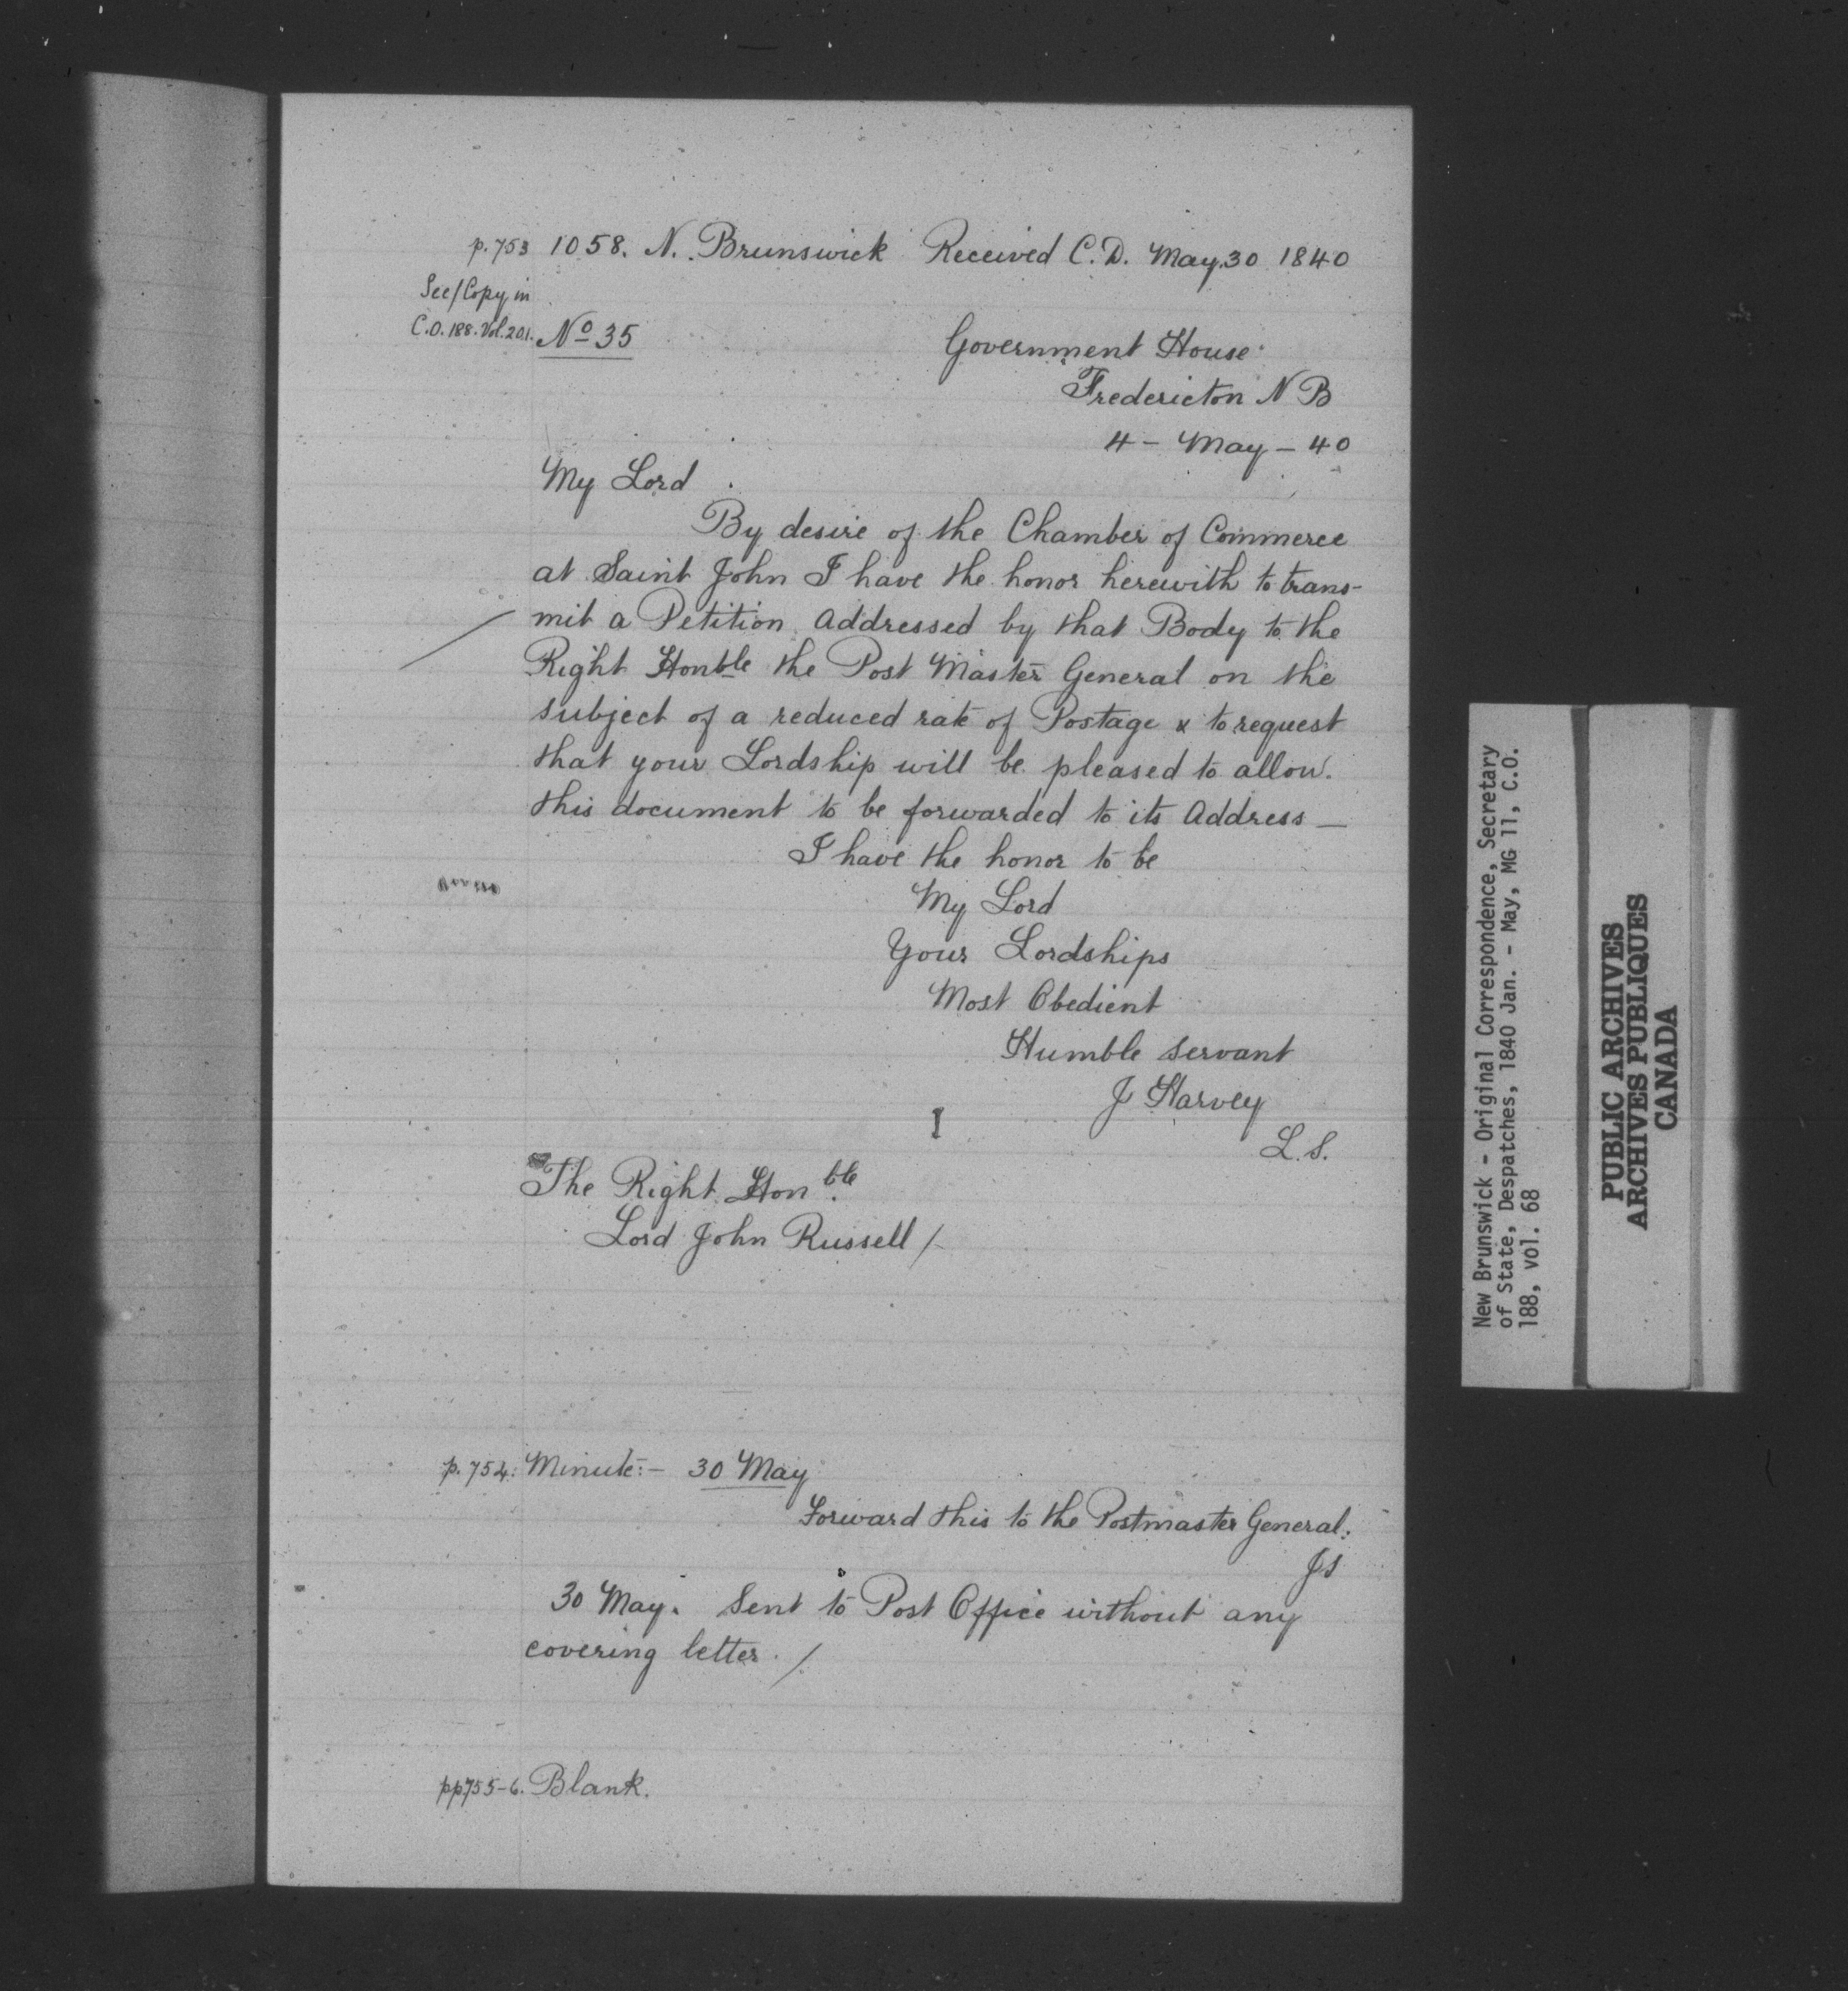 p.753 1058. N. Brunswick Received C.D. May.30 1840
See/Copy in
C.O.188.Vol.201. Nº 35
Government House
Fredericton N B
4 - May - 40
My Lord
By desire of the Chamber of Commerce
at Saint John I have the honor herewith to trans-
mit a Petition Addressed by that Body to the
Right Honble the Post Master General on the
subject of a reduced rate of Postage & to request
that your Lordship will be pleased to allow.
this document to be forwarded to its Address—
I have the honor to be
My Lord
Your Lordships
Most Obedient
Humble Servant
J Harvey
L.S.
The Right Honble.
Lord John Russell /
p.754: Minute:- 30 May
Forward this to the Postmaster General.
JS
30 May. Sent to Post Office without any
covering letter. /
pp755-6. Blank.
New Brunswick - Original Correspondence, Secretary
of State, Despatches, 1840 Jan. - May, MG 11, C.O.
188, vol. 68
PUBLIC ARCHIVES
ARCHIVES PUBLIQUES
CANADA